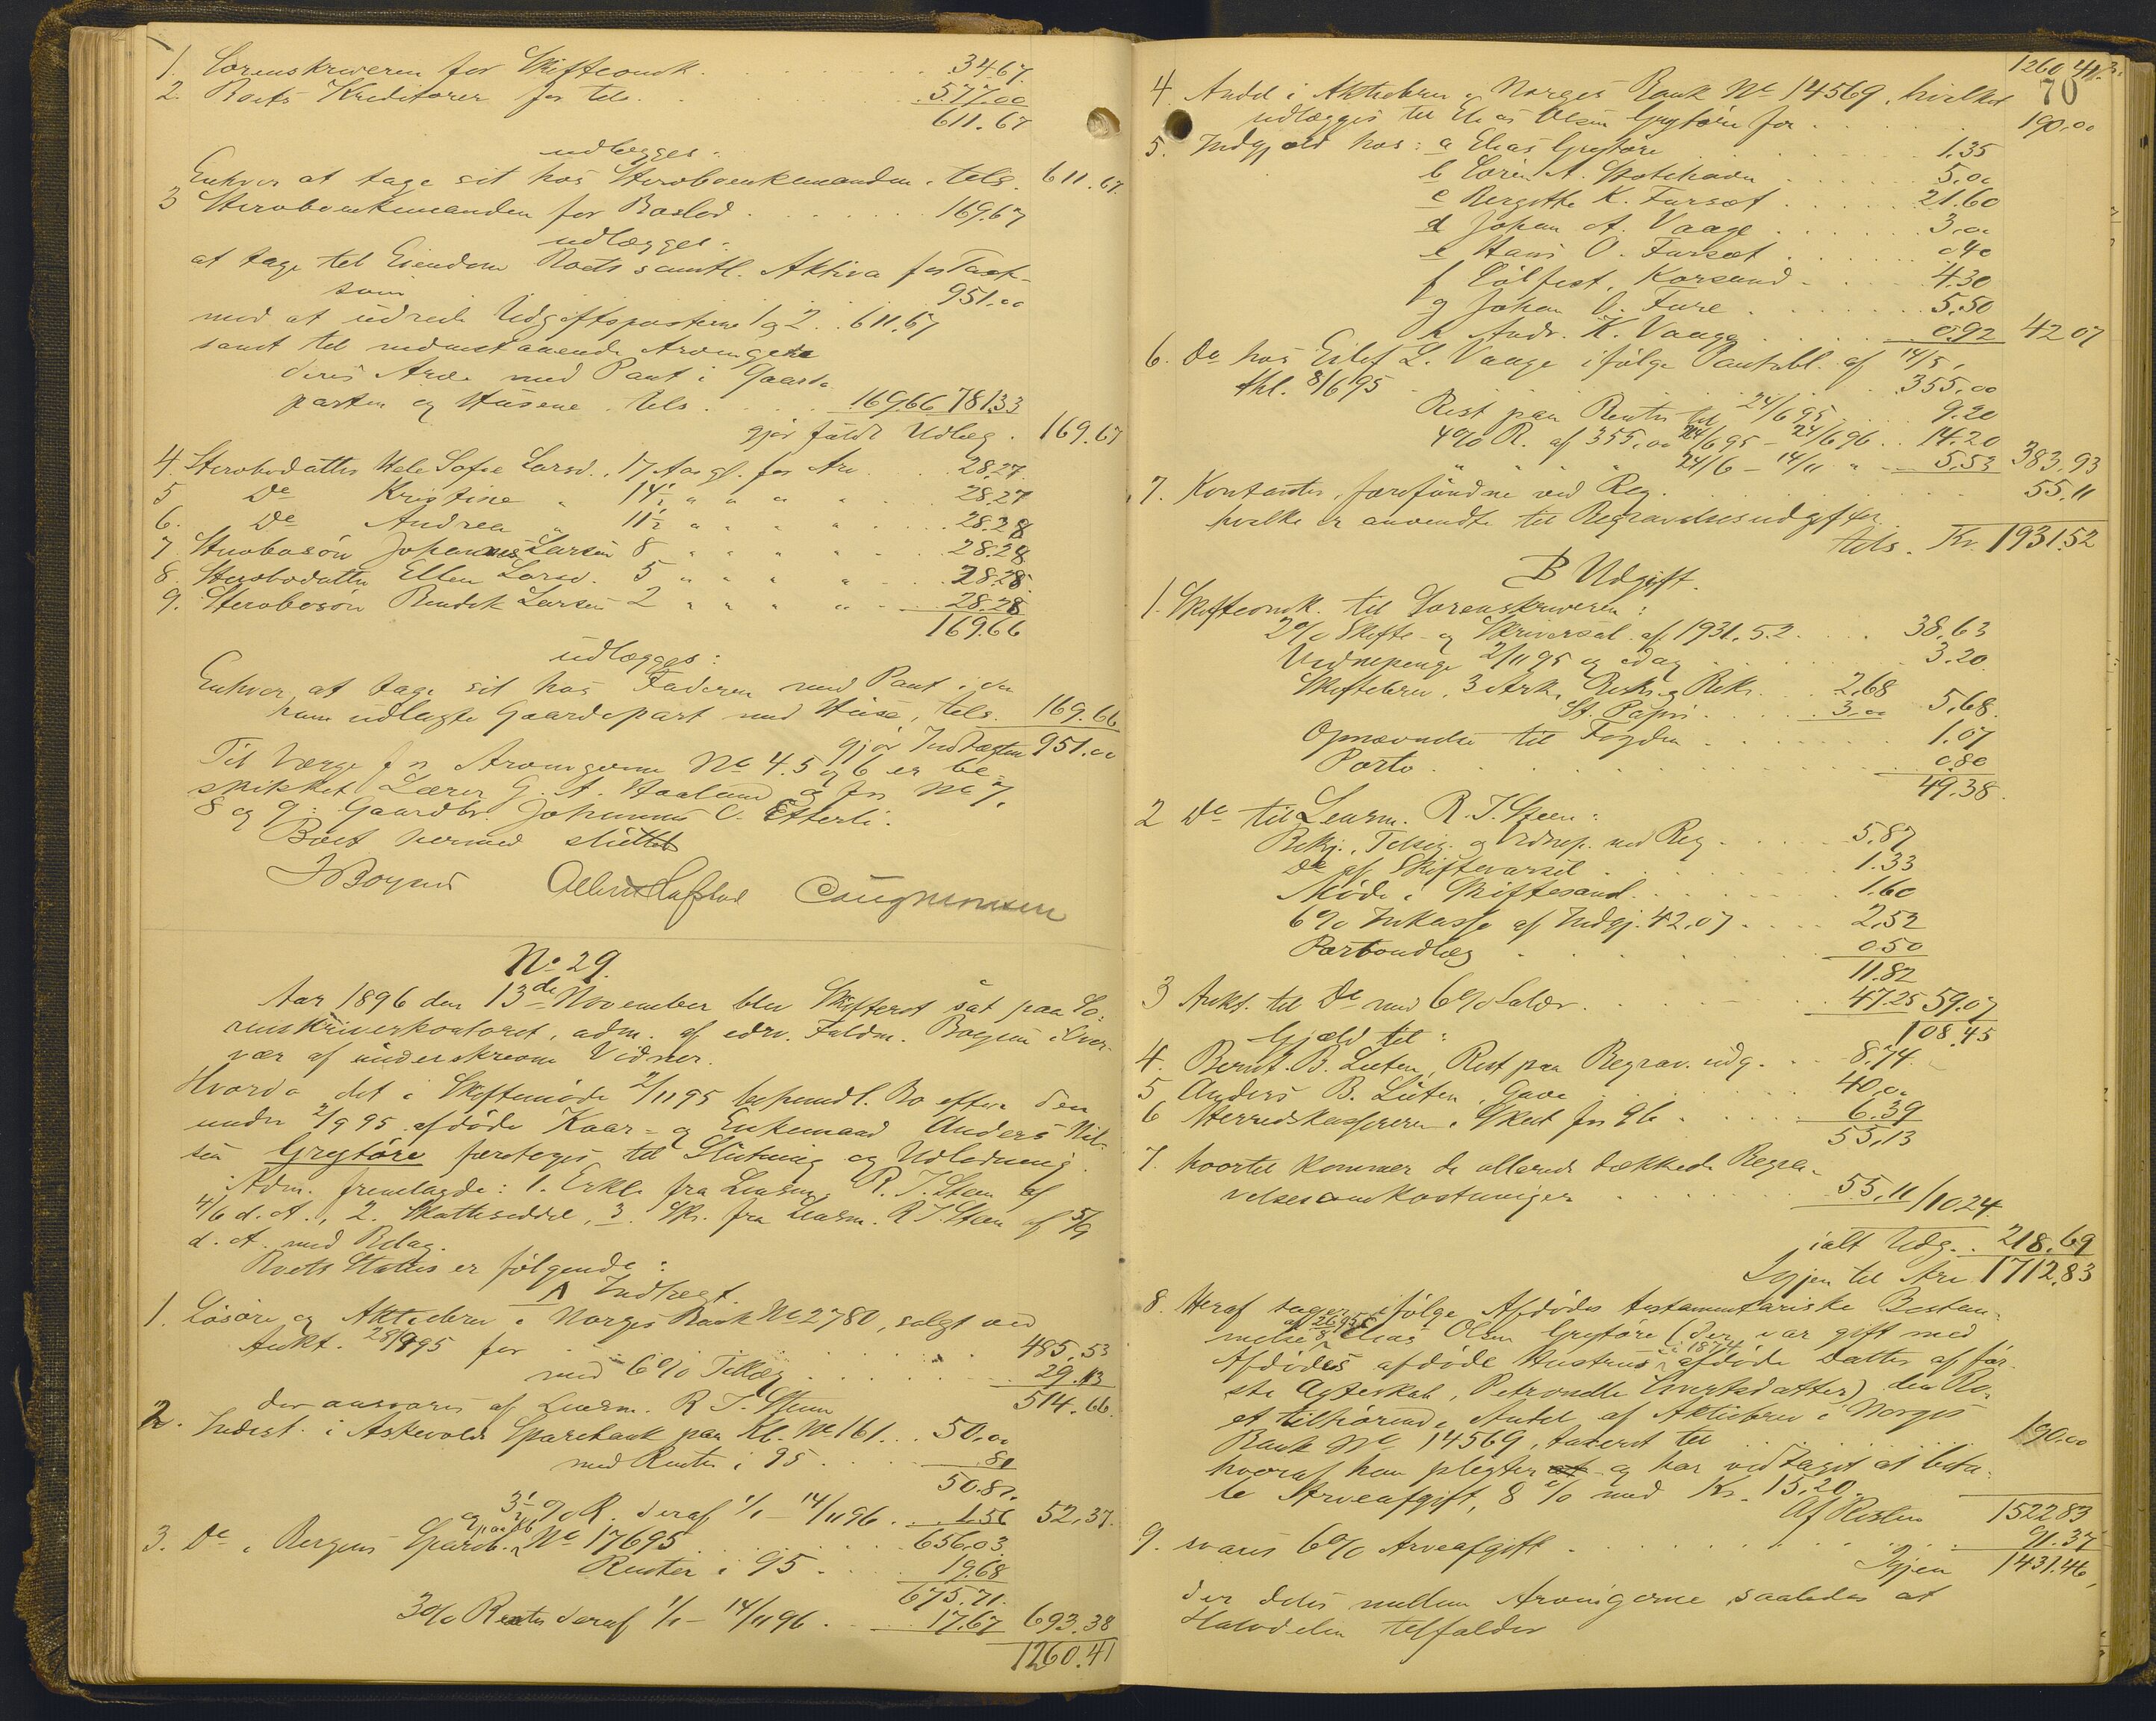 1. Sorenskriveren for Skifteomk. 34.67
2. Boets Kreditorer for tils. 577.00
611.67
udlægges:
Enhver at tage sit hos Sterboenkemanden, tils. 611.67.
3 Sterboenkemanden for Boslod 169.67
udlægges:
at tage til Eiendom Boets samtl. Aktiva for Taxt-
sum 951.00
mod at udrede Udgiftsposterne 1 og 2. 611.67
samt til nedenstaaende Arvingere
deres Arv med Pant i Gaards-
parten og Husene, tils. 169.66 781.33
gjør fuldt Udlæg. 169.67
4. Sterbodatter Hele Sofie Larsd., 17 Aar gl. for Arv 28.27
5 Do Kristine " 14½ " " " " 28.27
6. Do Andrea " 11½ " " " " 28.28
7 Sterbosøn Johannes Larsen 8 " " " " 28.28
8. Sterbodatter Ellen Larsd. 5 " " " " 28.28
9. Sterbosøn Bendik Larsen 2 " " " " 28.28
169.66
udlægges:
Enhver at tage sit hos Faderen med Pant i den
ham udlagte Gaardspart med Huse, tils. 169.66
gjør Indtægten 951.00
Til Værge for Arvingerne No 4. 5 og 6 er be-
skikket Lærer G. A. Haaland og for No 7,
8 og 9: Gaardbr. Johannes O. Espeli.
Boet hermed sluttet
No 29.
Aar 1896 den 13de November blev Skifteret sat paa So-
renskriverkontoret, adm. af edsv. Fuldm. Bøgum i Over-
vær af underskrevne Vidner.
Hvorda det i Skiftemøde 2/11 95 behandl. Bo efter den
under 2/9 95 afdøde Kaar- og Enkemand Anders Nil-
sen Grytøre foretoges til Slutning og Udlodning.
Adm. fremlagde: 1. Erkl. fra Lensm. R. T. Steen af
4/6 d. A., 2. Skatteseddel, 3. Skr. fra Lensm. R T. Steen af 5/9
d. A. med Bilag.
Boets Status er følgende:
A Indtægt.
1. Løsøre og Aktiebrev i Norges Bank No 2780, solgt ved
Aukt. 28/9 95 for 485.53
med 6% Tillæg 29.13
der ansvares af Lensm. R T. Steen 514.66.
2. Indest. i Askevolds Sparebank paa Kb. No 161 50.00
med Renter i 95 81
50.81.
3½ % R. deraf 1/1 - 14/11 96 1.56 52.37.
3. Do i Bergens Spareb. og paa Kb No 17695 656.03
Renter i 95 19.68
675.71.
3% Renter deraf 1/1 - 14/11 96 17.67 693.38
1260.41
70
1260.41.
4. Andel i Aktiebrev i Norges Bank No 14569, hvilket
udlægges til Elias Olsen Grytøre for 190.00
5. Indgjæld hos: a Elias Grytøre 1.35
b Søren A. Stolehavn 5.00
c Bergithe K. Fursæt 21.60
d Johan A. Vaage 3.00
e Hans O. Fursæt 0 40
f Tolfest. Korsund 4.30
g Johan O. Fure 5.50
h Andr. K. Vaage 0.92 42 07
6. Do hos Eilef L. Vaage ifølge Pantobl. af 14/5,
thl. 8/6 95 355.00
Rest paa Renter til 24/6 95 9.20
4% R. af 355.00 24/6 95 - 24/6 96 14.20
" " " 24/6 - 14/11 " 5.53 383.93
7. Kontanter, forefundne ved Reg. 55.11
hvilke er anvendte til Begravelsesudgifter
tils. Kr. 1931.52
B Udgift.
1. Skifteomk. til Sorenskriveren:
2% Skifte- og Skriversal. af 1931.52. 38.63
Vidnepenge 2/11 95 og idag 3.20
Skiftebrev, 3 Ark, Besk. og Beks. 2.68
St. Papir 3.00 5.68.
Opnævnelse til Fogden 1.07
Porto 0.80
49.38.
2 Do til Lensm. R. T. Steen:
Bekj., Tilsig. og Vidnep. ved Reg 5.87
Do af Skiftevarsel 1.33
Møde i Skiftesaml. 1.60
6% Inkasso af Indgj. 42.07 2.52
Portoudlæg 0.50
11.82
3 Aukt. til Do med 6% Salær 47.25 59.07
108.45
Gjæld til:
4. Bernt B. Liuten, Rest paa Begrav. udg. 8.74
5 Anders B. Liuten, Gave 40.00
6 Herredskassereren i Skat for 96 6.39
55.13
7. hvortil kommer de allerede dækkede Begra-
velsesomkostninger 55.11 110.24
ialt Udg. 218.69
Igjen til Arv 1712.83
8. Heraf tager ifølge Afdødes testamentariske Bestem-
melse af 26/8 95 Elias Olsen Grytøre (der var gift med
Afdødes afdøde Hustrus i 1874 afdøde Datter af før-
ste Ægteskab, Petronelle Sivertsdatter) den Bo-
et tilhørende Andel af Aktiebrev i Norges
Bank No 14569, taxeret til 190.00
hvoraf han pligter at og har vedtaget at beta-
le Arveafgift, 8 % med Kr. 15.20.
Af Resten 1522.83
9. svares 6% Arveafgift 91.37
Igjen 1431.46,
der deles mellem Arvingerne saaledes at
Halvdelen tilfalder